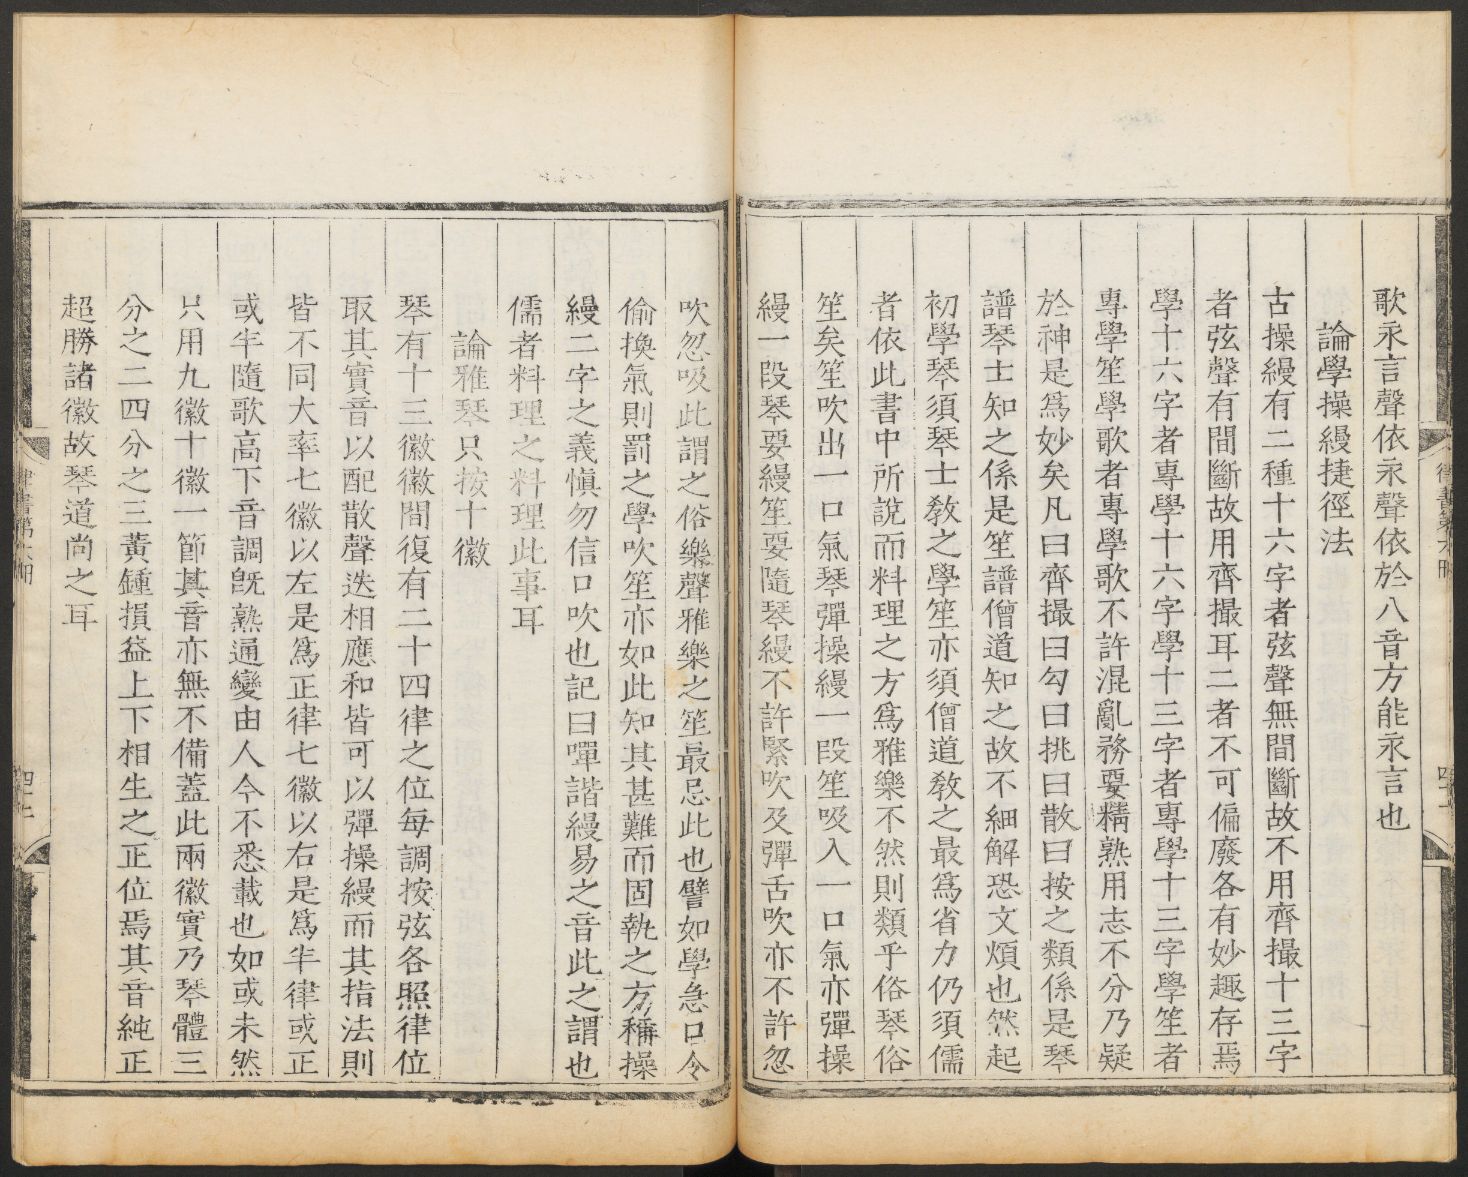 歌永言聲依永聲依於八音方能永言也
論學操縵捷徑法
古操縵有二種十六字者弦聲無間斷故不用齊撮十三字
者弦聲有間斷故用齊撮耳二者不可偏廢各有妙趣存焉
學十六字者專學十六字學十三字者專學十三字學笙者
專學笙學歌者專學歌不許混亂務要精熟用志不分乃疑
於神是爲妙矣凡曰齊撮曰勾曰挑曰散曰按之類係是琴
譜琴士知之係是笙譜僧道知之故不細解恐文煩也然起
初學琴須琴士教之學笙亦須僧道教之最爲省力仍須儒
者依此書中所說而料理之方爲雅樂不然則類乎俗琴俗
笙矣笙吹出一口氣琴彈操縵一段笙吸入一口氣亦彈操
縵一段琴要縵笙要隨琴縵不許緊吹及彈舌吹亦不許忽
吹忽吸此謂之俗樂聲雅樂之笙最忌此也譬如學急口令
偷換氣則罰之學吹笙亦如此知其甚難而固執之方稱操
縵二字之義愼勿信口吹也記曰嘽諧縵易之音此之謂也
儒者料理之料理此事耳
論雅琴只按十徽
琴有十三徽徽間復有二十四律之位每調按弦各照律位
取其實音以配散聲迭相應和皆可以彈操縵而其指法則
皆不同大率七徽以左是爲正律七徽以右是爲半律或正
或半隨歌高下音調旣熟通變由人今不悉載也如或未然
只用九徽十徽一節其音亦無不備蓋此兩徽實乃琴體三
分之二四分之三黃鍾損益上下相生之正位焉其音純正
超勝諸徽故琴道尚之耳